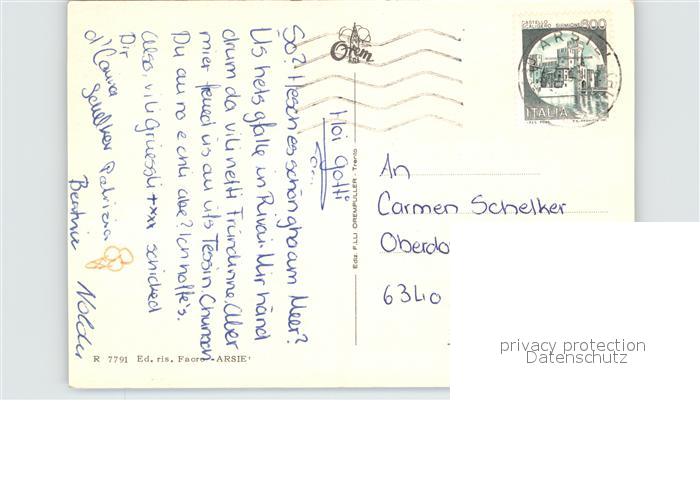 Hoi Gotti
So? Hesch es schön gha am Meer?
Us hets gfalle in Rivai. Mir händ
drum da vili netti Fründinne. Aber
mier freued üs au ufs Tessin. Chunsch
Du au no e chli abe? Ich hoffe's.
Also, vili Grüessli + xxx schicked
Dir
d'Laura
Schelker Patrizia
Beatrice
R 7791 Ed. ris. Faoro - ARSIE'
Orem
Ediz. F.LLI OREMPULLER - Trento
CASTELLO
SCALIGERO SIRMIONE
600
ARSIE
ITALIA
An
Carmen Schelker
Oberdo
6340
privacy protection
Datenschutz